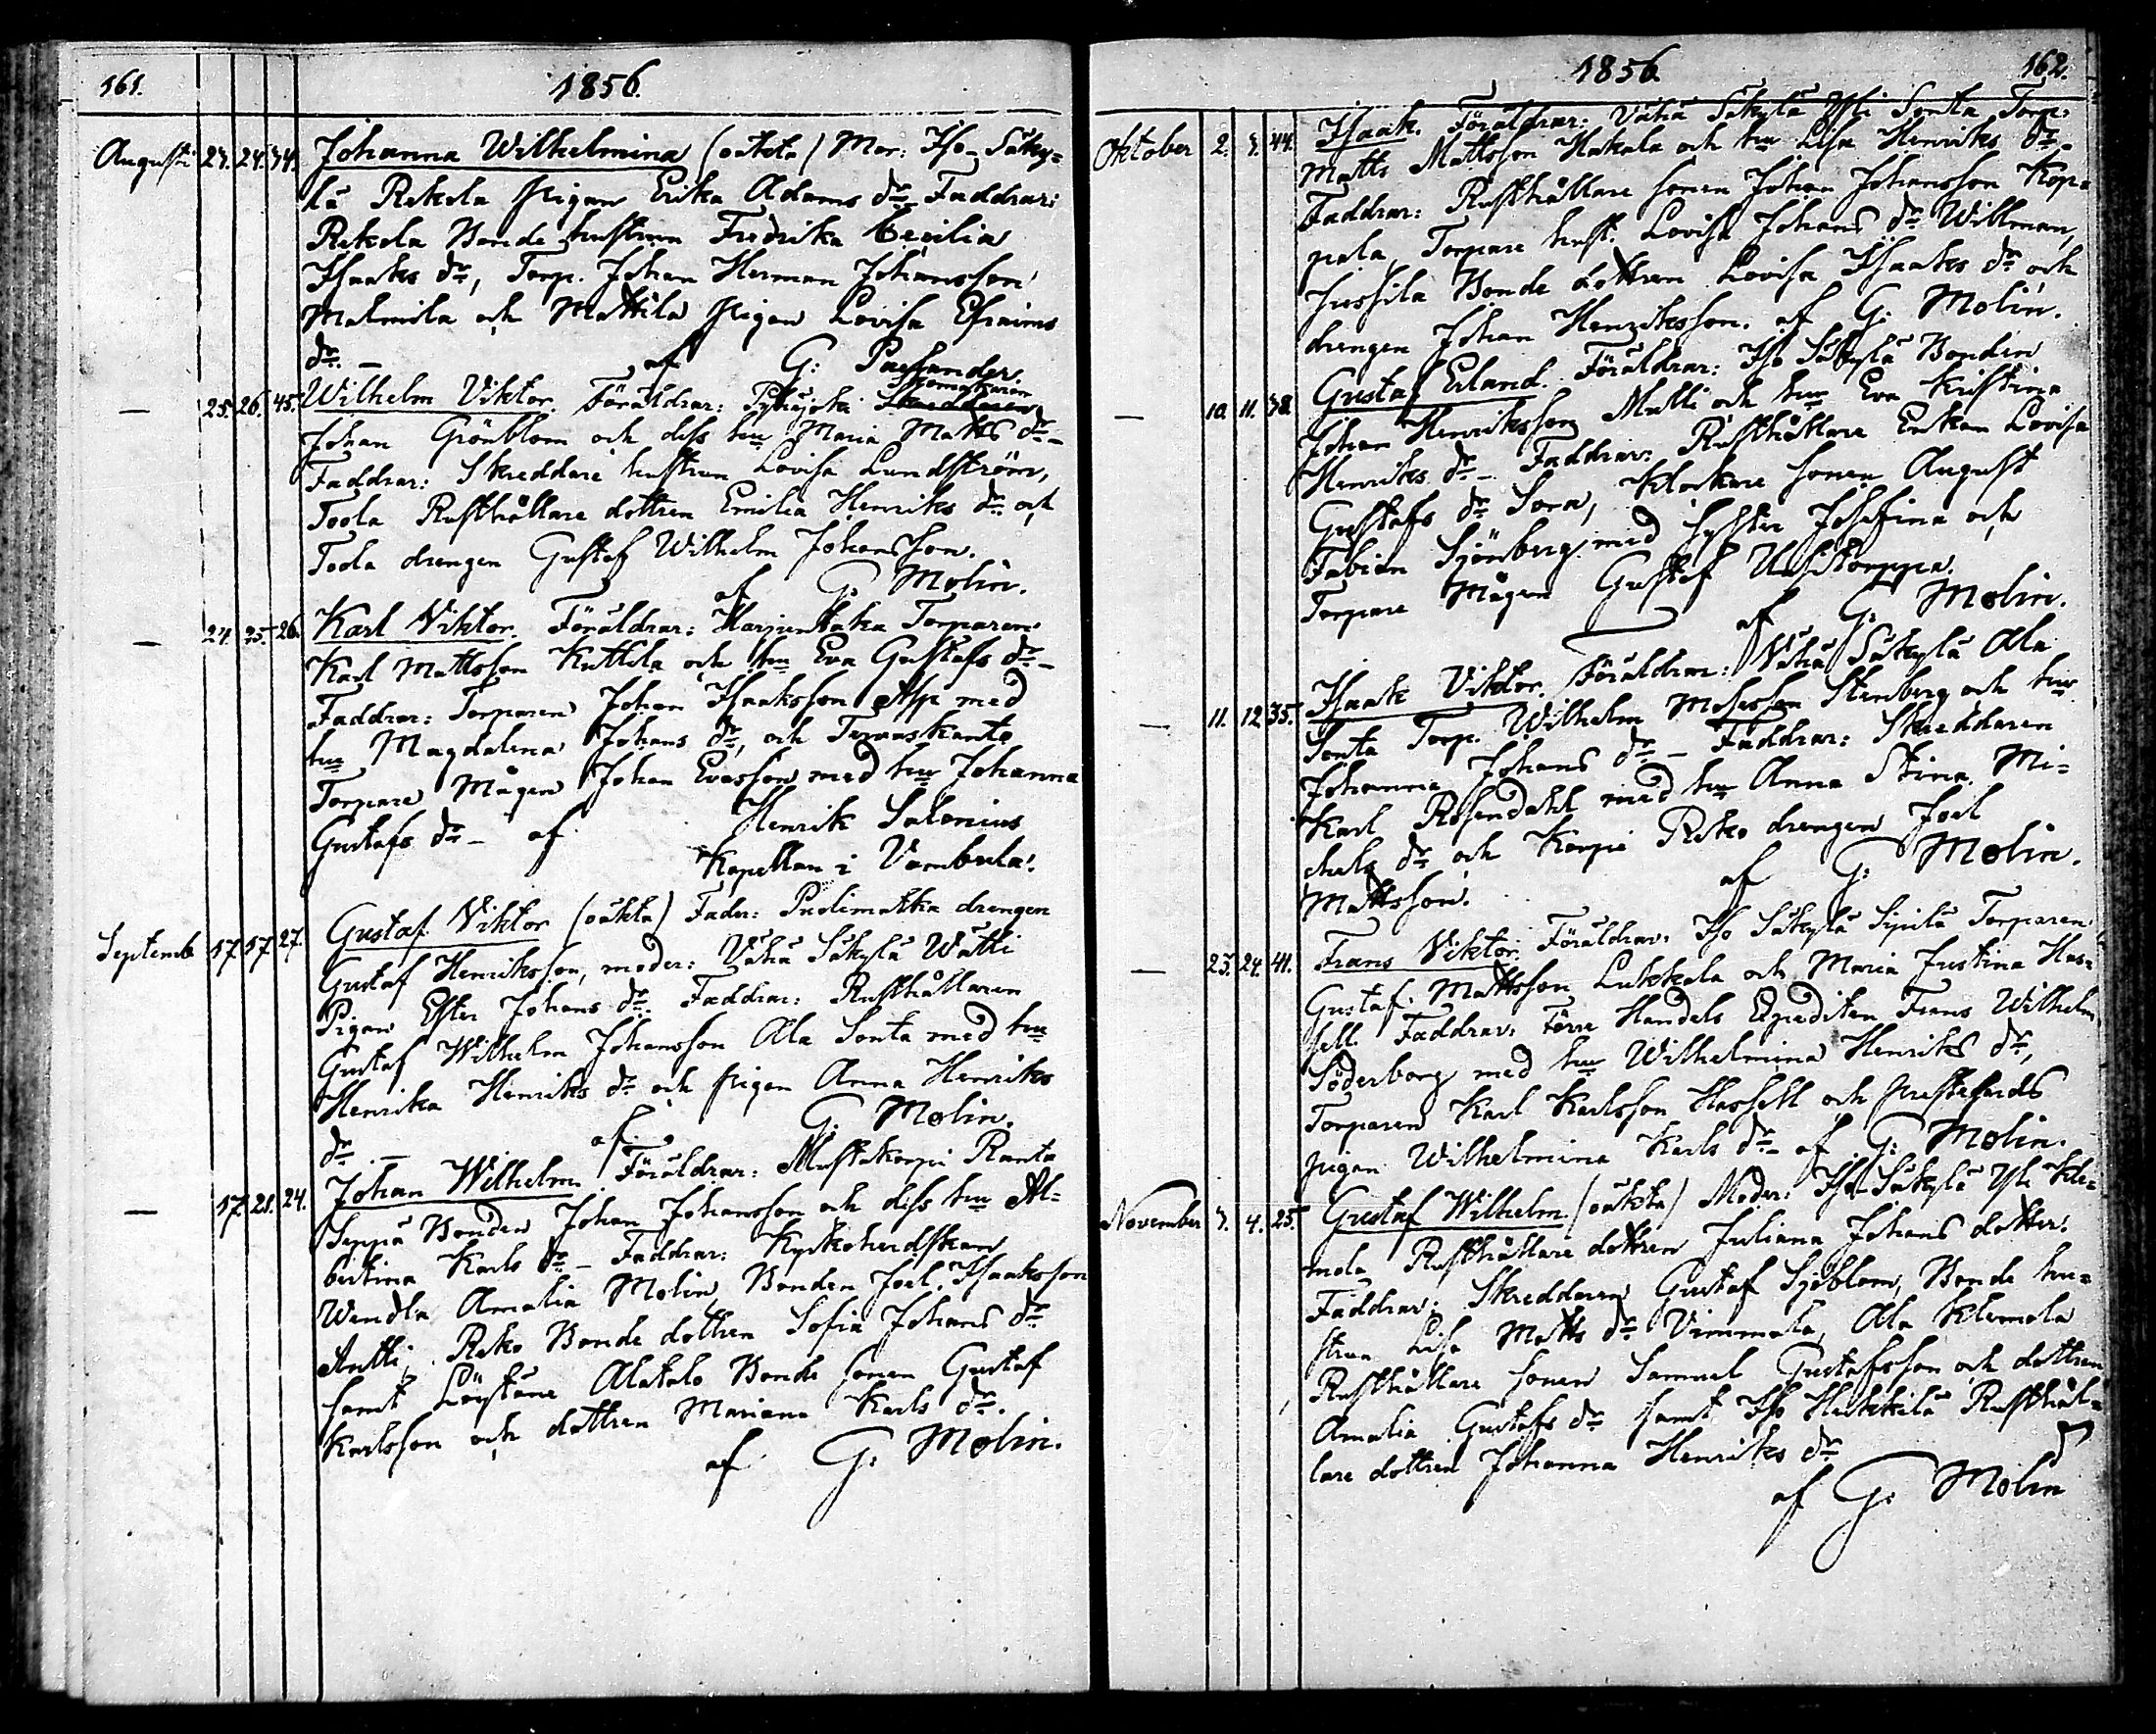 161.
1856.
Augusti 23. 24. 34. Johanna Wilhelmina (oäkta) Mor: Iso-Säky=
lä Rekola pigan Erika Adams dr. Faddrar:
Rekola Bonde hustrun Fredrika Cecilia
Isaaks dr, Torp. Johan Herman Johansson
Malmila och Mattila pigan Lovisa Efraims
dr. – af G: Passander
Skomakaren
— 25. 26. 45. Wilhelm Viktor. Föräldrar: Pyhäjoki Skreddaren
Johan Grönblom och dess hru Maria Matts dr –
Faddrar: Skreddare hustrun Lovisa Lundström,
Toola Rusthållare dottren Emilia Henriks dr och
Toola drengen Gustaf Wilhelm Johansson.
af G. Molin.
— 24. 25. 26. Karl Viktor. Föräldrar: Torparen
Karl Mattsson Kuttila och hru Eva Gustafs dr –
Faddrar: Torparen Johan Isaksson Asp med
hru Magdalena Johans dr, och
Torpare Mågen Johan Evasson med hru Johanna
Gustafs dr – af Henrik Salonius
Kapellan i Vambula.
Septemb 17 17 27. Gustaf Viktor (oäkta) Fader: Puolimatka drengen
Gustaf Henriksson, moder: Vähä Säkylä Wätti
Pigan Ester Johans dr. Faddrar: Rusthållaren
Gustaf Wilhelm Johansson Ala Sonta med hru
Henrika Henriks dr och pigan Anna Henriks
dr. – af G. Molin.
— 17. 21. 24. Johan Wilhelm. Föräldrar: Mustakorpi Ranta
Seppä Bonden Johan Johansson och dess hru Al=
bertina Karls dr – Faddrar: Kyrkoherdskan
Wendla Amalia Molin, Bonden Joel Isaksson
Antti, Reko Bonde dottren Sofia Johans dr
samt Löystäne Alatalo Bonde sonen Gustaf
Karlsson och dottren Mariana Karls dr.
af G. Molin.
1856
162.
Oktober 2. 3. 44. Isaak. Föräldrar: Vähä Säkylä Yli Sonta Torp:
Matts Mattsson Hakala och hru Lisa Henriks dr –
Faddrar: Rusthållare sonen Johan Johansson Kop=
pala, Torpare hust. Lovisa Johans dr Willman,
Jussila Bonde dottren Lovisa Isaaks dr och
drengen Johan Henriksson. af G. Molin.
— 10. 11. 38. Gustaf Erland. Föräldrar: Iso Säkylä Bonden
Johan Henriksson Mulli och hru Eva Kristina
Henriks dr – Faddrar: Rusthållare Enkan Lovisa
Gustafs dr Sora, Klockare sonen August
Fabian Sjönberg med syster Josefina och
Torpare Mågen Gustaf
af G. Molin.
— 11. 12. 35. Isaak Viktor. Föräldrar: Vähä Säkylä Ala
Sonta Torp. Wilhelm Mosesson Stenberg och hru
Johanna Johans dr – Faddrar: Skreddaren
Karl Rosendahl med hru Anna Stina Mi=
chels dr och Korpi Reko drengen Joel
Mattsson. af G. Molin.
— 23. 24. 41. Frans Viktor. Föräldrar: Iso Säkylä Sipilä Torparen
Gustaf Mattsson Lukkala och Maria Justina Has=
sell. Faddrar: Förre Handels Expediten Frans Wilhelm
Söderborg med hru Wilhelmina Henriks dr,
Torparen Karl Karlsson Hassell och prestgårds
pigan Wilhelmina Karls dr – af G. Molin.
November 3. 4. 25. Gustaf Wilhelm (oäkta) Moder: Iso-Säkylä Yli Kle=
mola Rusthållare dottren Juliana Johans dotter.
Faddrar: Skreddaren Gustaf Sjöblom, Bonde hu=
strun Lisa Matts dr Vimmala, Ala Klemola
Rusthållare sonen Samuel Gustafsson och dottren
Amalia Gustafs dr samt Iso Heikkilä Rusthål=
lare dottren Johanna Henriks dr
af G. Molin